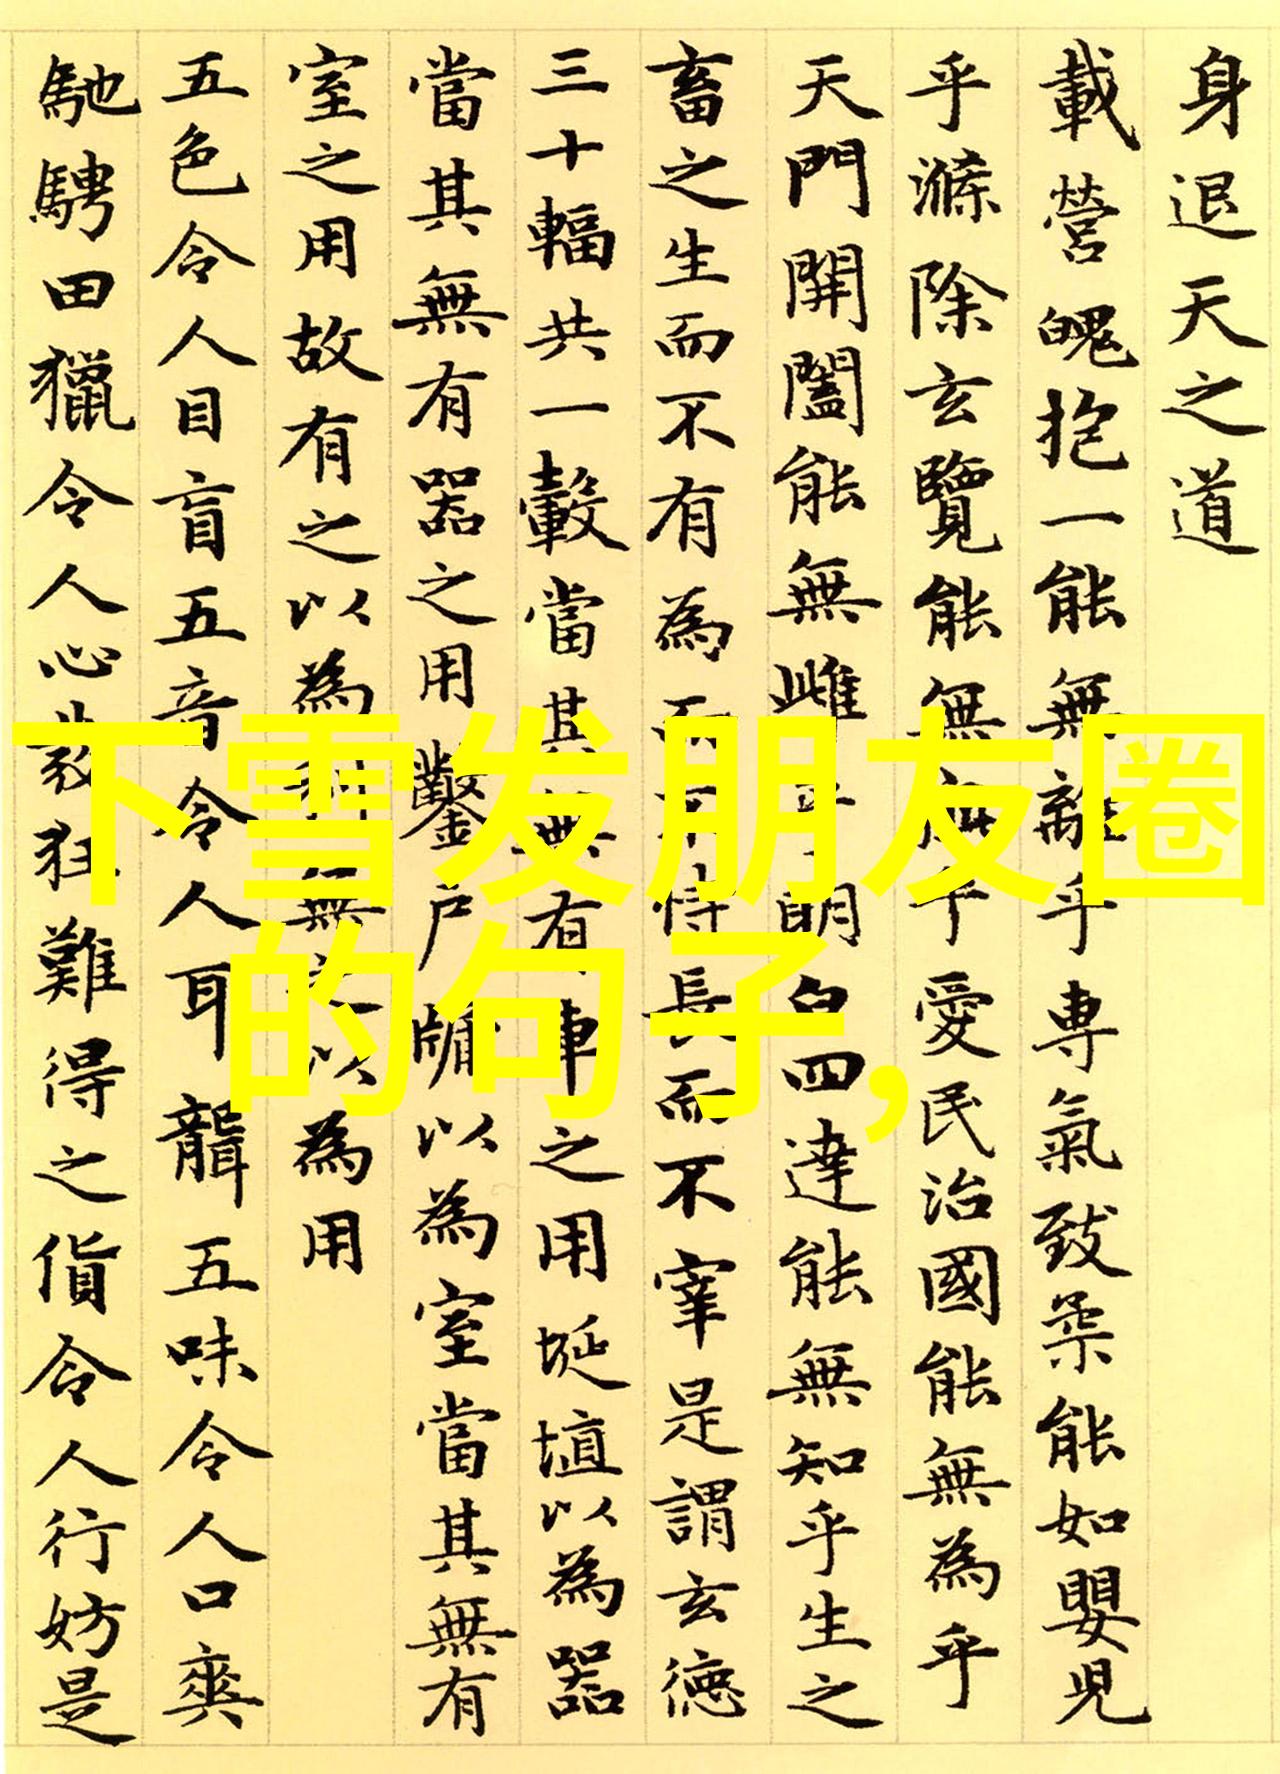 身退天之道
載營魄抱一能無離乎專氣致柔能如嬰兒
乎滌除玄覽能無疵乎愛民治國能無為乎
天門開闔能無雌乎明白四達能無知乎生之
畜之生而不有為而不恃長而不宰是謂玄德
三十輻共一轂當其無有車之用埏埴以為器
當其無有器之用鑿戶牖以為室當其無有
室之用故有之以為利無之以為用
五色令人目盲五音令人耳聾五味令人口爽
馳騁田獵令人心發狂難得之貨令人行妨是
下雪发朋友圈
的句子,